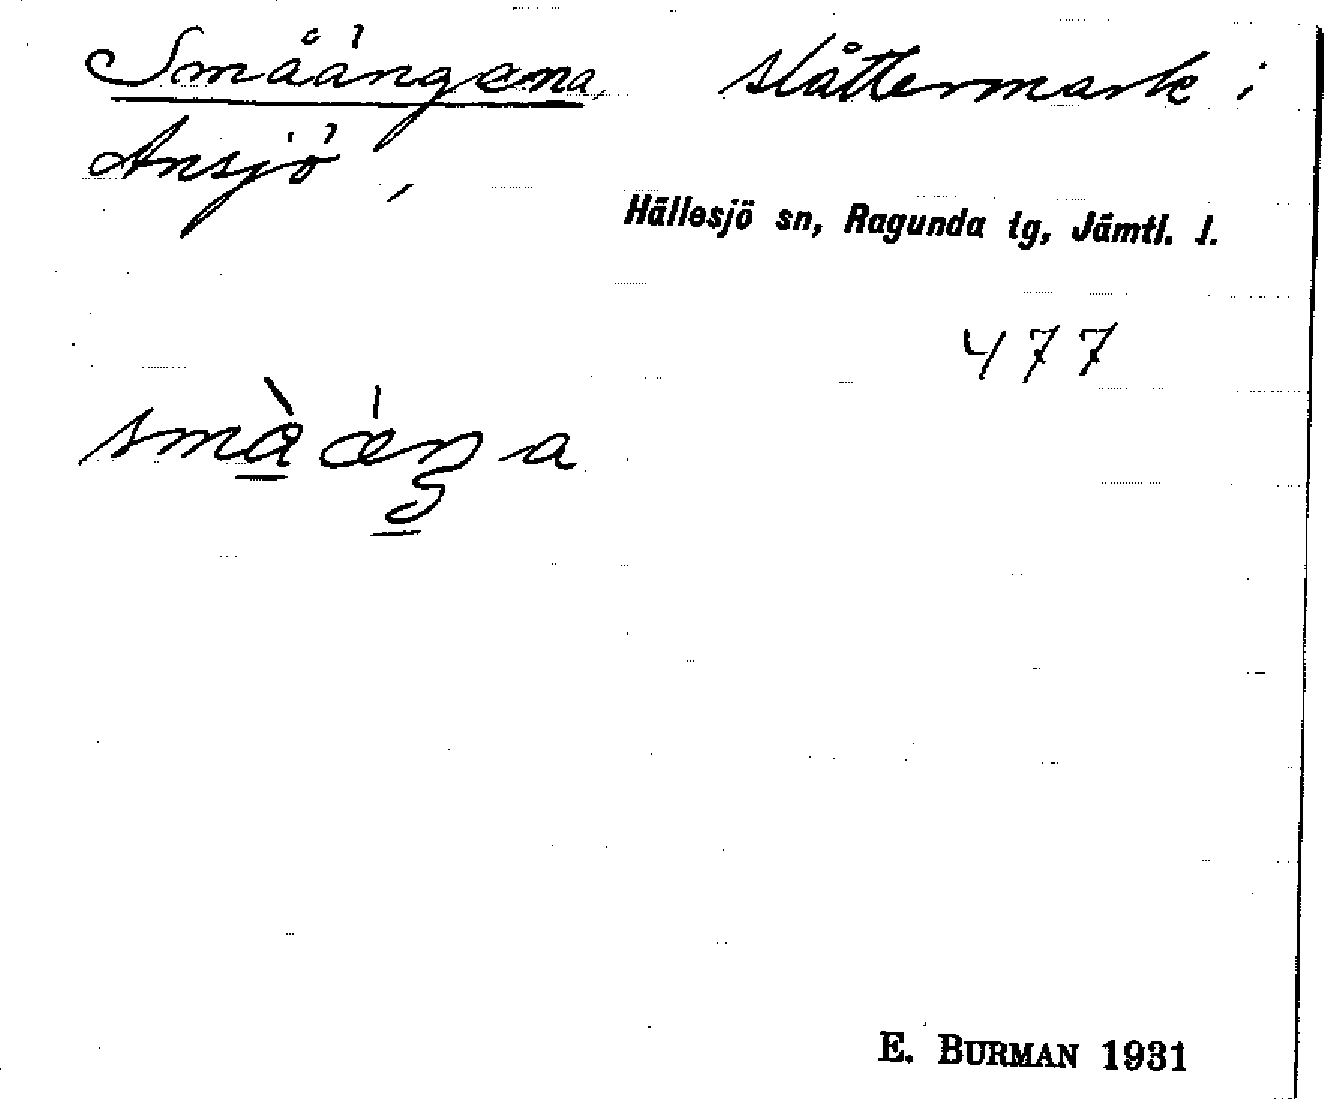 Småängarna, slåttermark i
Ansjö,
Hällesjö sn, Ragunda tg, Jämtl. l.
477
E. BURMAN 1931